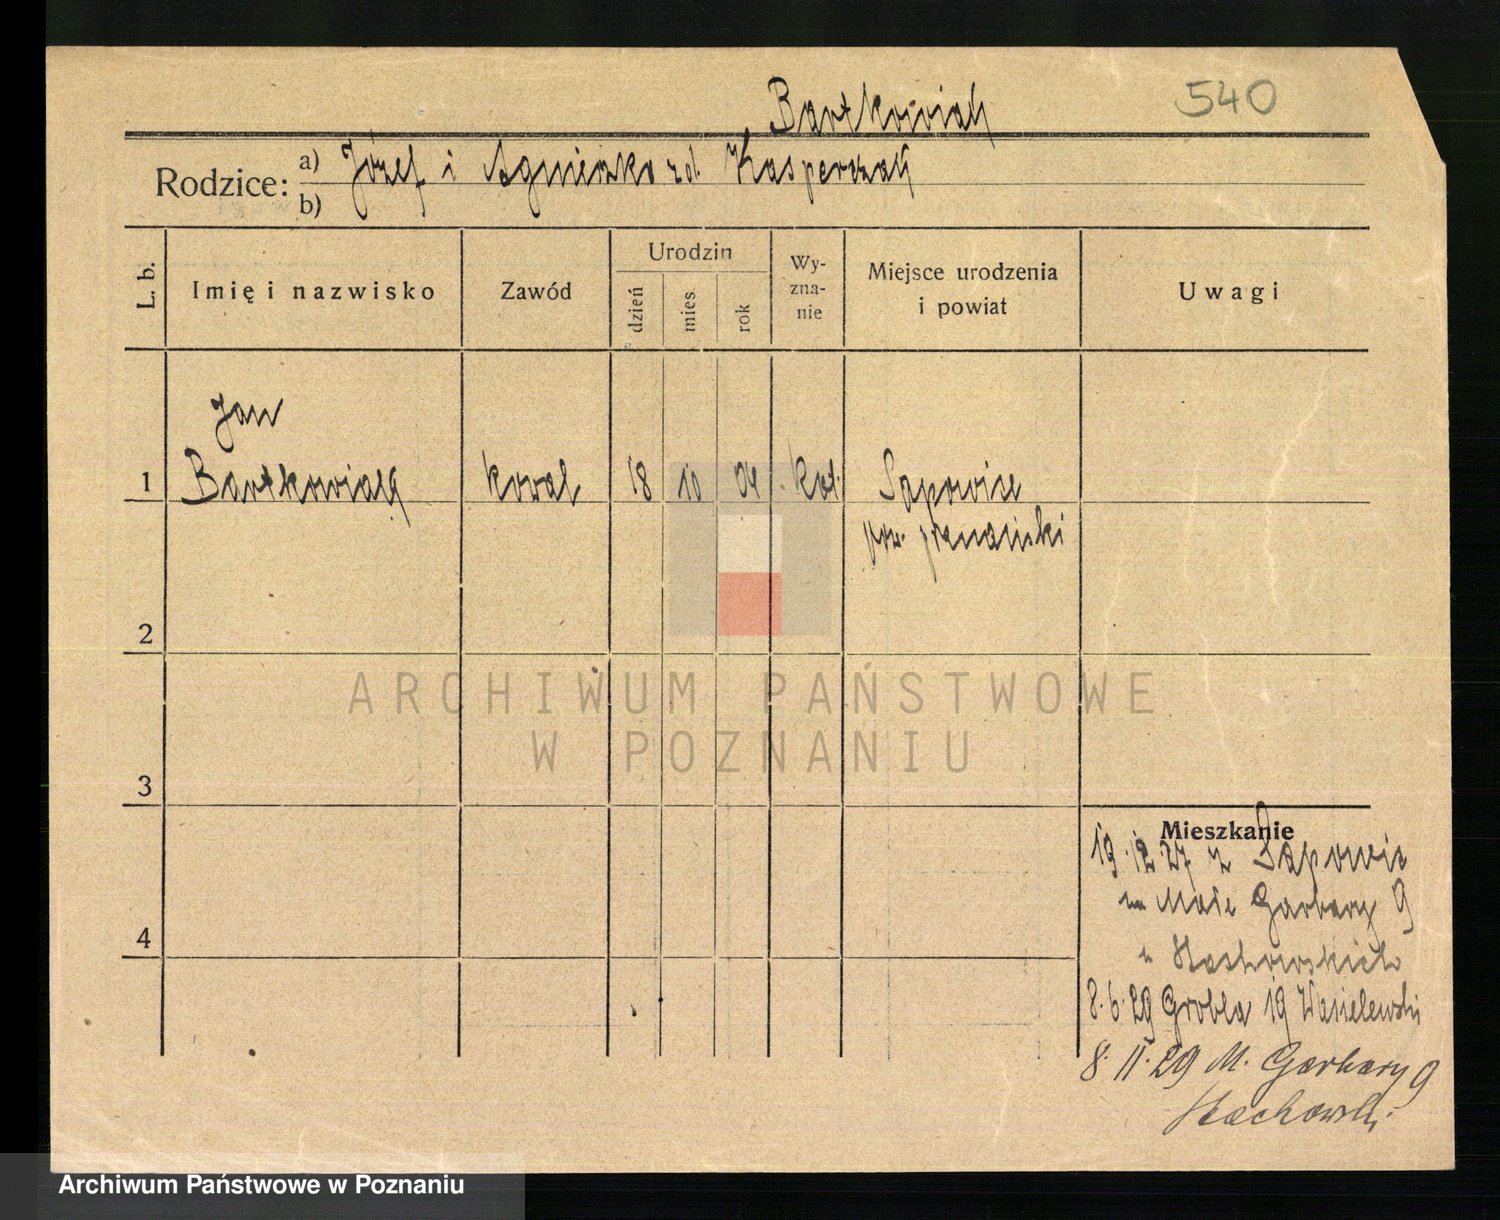 Bartkowiak 540
Rodzice: a) Józef i Agnieszka zd. Kasperczak
b)
L. b. Imię i nazwisko Zawód Urodzin dzień mies. rok Wy-zna-nie Miejsce urodzenia i powiat Uwagi
Jan
1 Bartkowiak kowal 18 10 04 kat. Sapowice
pow. poznański
2
ARCHIWUM PAŃSTWOWE
W POZNANIU
3
Mieszkanie
19.12.27 z Sapowic
na Małe Garbary 9
u Stachowskich
4
8.6.29 Grobla 19 Wasielewski
8.11.29 M. Garbary 9
Stachowski
Archiwum Państwowe w Poznaniu